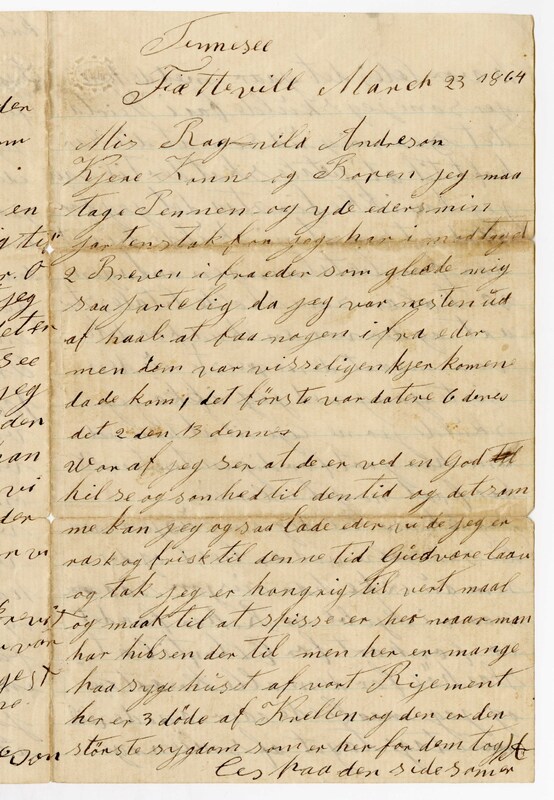 Tennisee
Fættevill March 23 1864
Mis Ragnild Andreson
Kjere Konne og Boren jeg maa
tage Pennen og yde eders min
jartenstak faa jeg har i modtaged
2 Breven i fra eder som glede mig
saa jartelig da jeg var nesten ud
af haab at faa nogen i fra eder
men dem var visseligen kjer komene
da de kom, det förste var datere 6 denes
det 2 den 13 dennes
Wor af jeg ser at de er ved en God
hilse og sonhed til den tid og det sam
me kan jeg ogsaa lade eder vide jeg er
rask og frisk til denne tid Gud være laav
og tak jeg er hongrig til vert maal
og maak til at spisse er her noaar man
har hilsen der til men her er mange
paa syge huset af vort Rijement
her er 3 döde af Krellen og den er den
störste sygdom som er her for dem tog
Les paa den side som er
der
om
en
r. O
jeg
see
jeg
den
an
vi
der
r vi
var
son